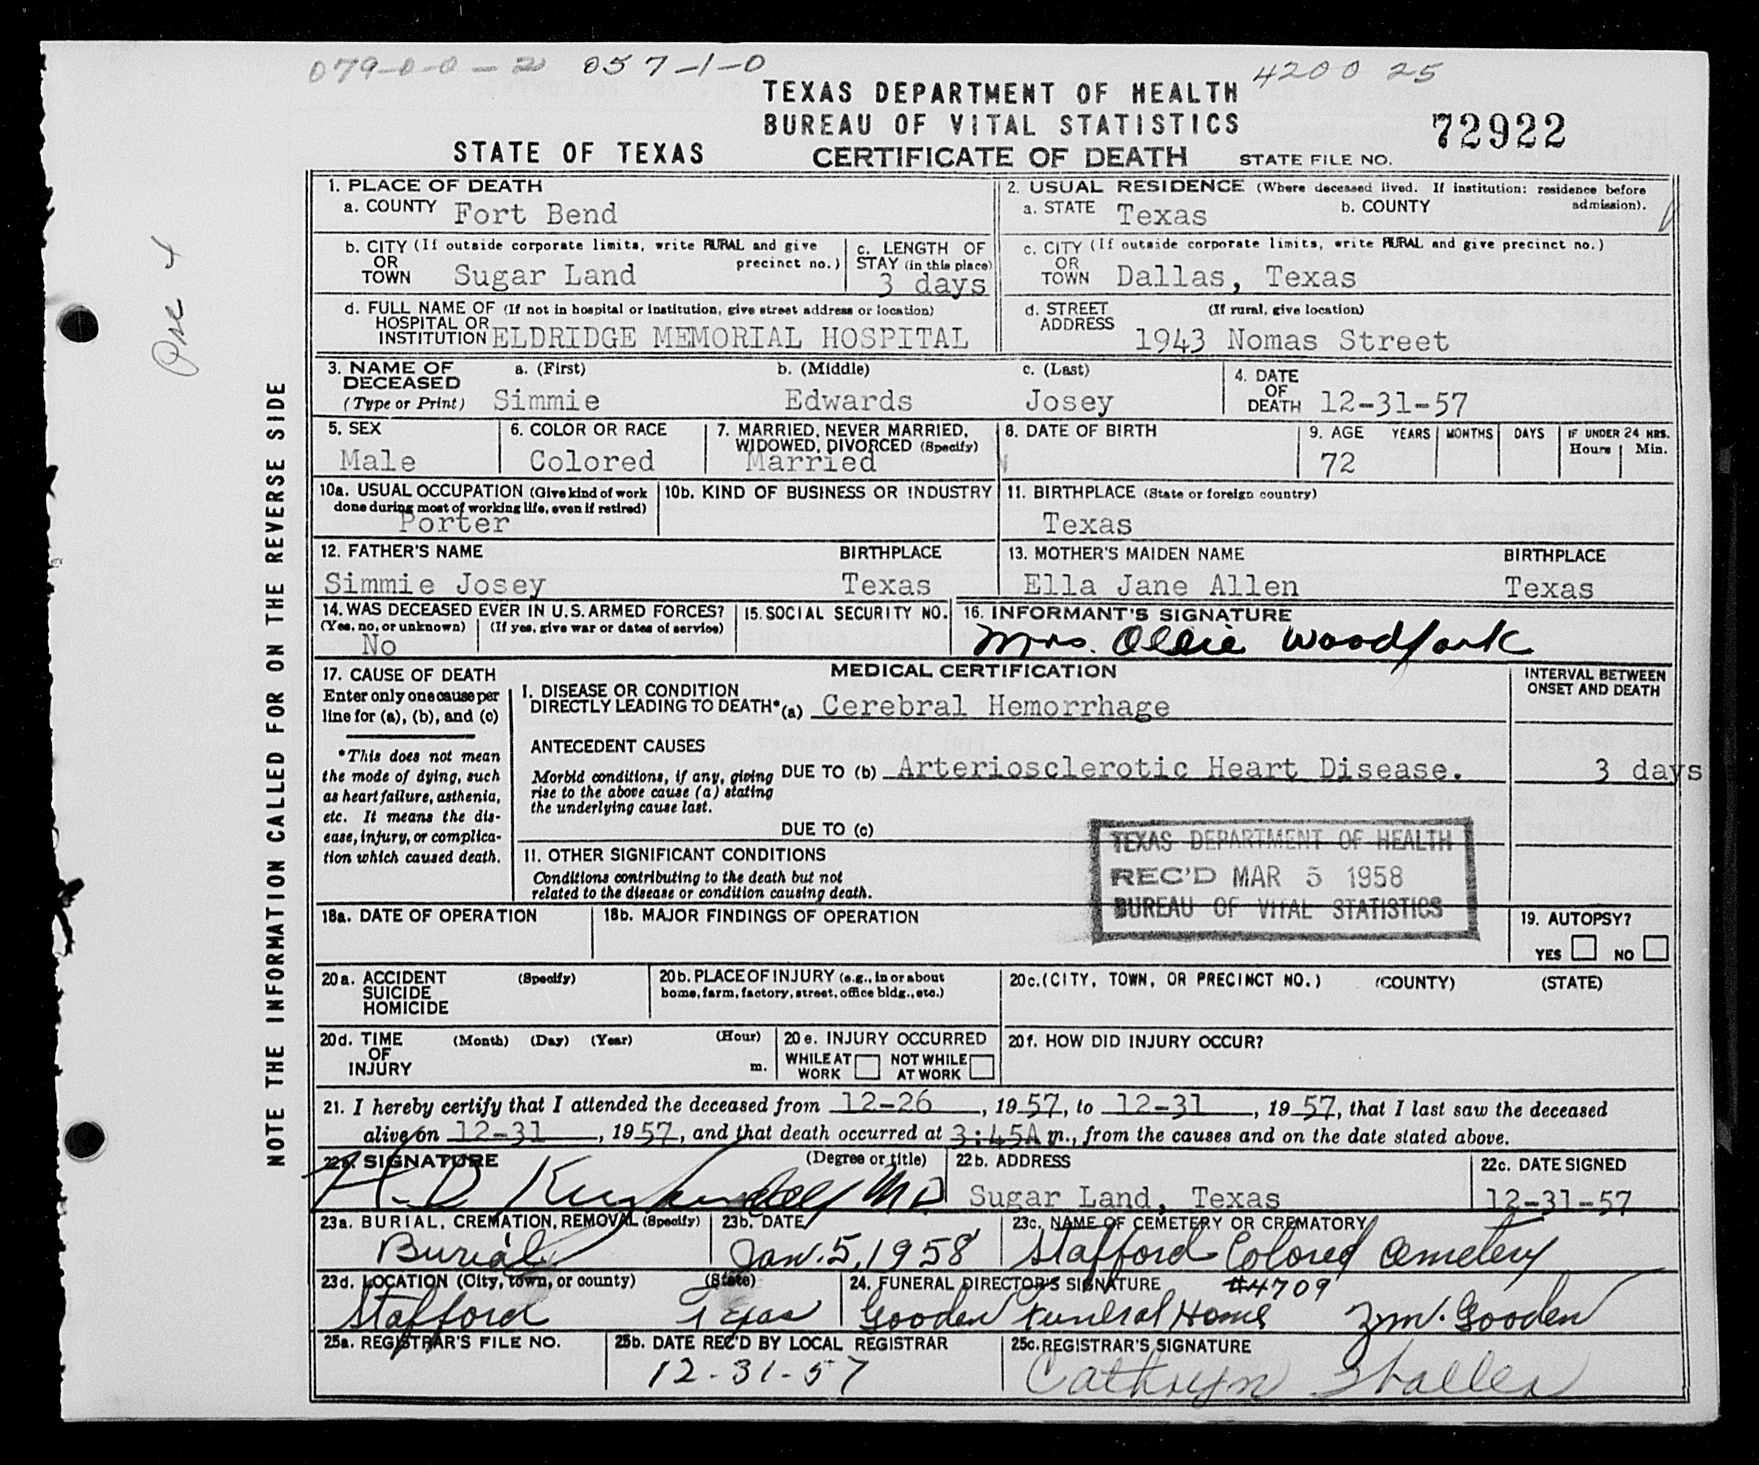 079-0-0-2 057-1-0
4200 25
TEXAS DEPARTMENT OF HEALTH
BUREAU OF VITAL STATISTICS
72922
STATE OF TEXAS CERTIFICATE OF DEATH STATE FILE NO.
1. PLACE OF DEATH
a. COUNTY Fort Bend
2. USUAL RESIDENCE (Where deceased lived. If institution: residence before admission).
a. STATE Texas b. COUNTY
b. CITY (If outside corporate limits, write RURAL and give precinct no.)
OR
TOWN Sugar Land
c. LENGTH OF
STAY (in this place)
3 days
c. CITY (If outside corporate limits, write RURAL and give precinct no.)
OR
TOWN Dallas, Texas
d. FULL NAME OF (If not in hospital or institution, give street address or location)
HOSPITAL OR
INSTITUTION ELDRIDGE MEMORIAL HOSPITAL
d. STREET (If rural, give location)
ADDRESS 1943 Nomas Street
3. NAME OF a. (First) b. (Middle) c. (Last)
DECEASED
(Type or Print) Simmie Edwards Josey
4. DATE
OF
DEATH 12-31-57
5. SEX
Male
6. COLOR OR RACE
Colored
7. MARRIED, NEVER MARRIED,
WIDOWED, DIVORCED (Specify)
Married
8. DATE OF BIRTH
9. AGE YEARS MONTHS DAYS IF UNDER 24 HRS.
Hours Min.
72
10a. USUAL OCCUPATION (Give kind of work
done during most of working life, even if retired)
Porter
10b. KIND OF BUSINESS OR INDUSTRY
11. BIRTHPLACE (State or foreign country)
Texas
12. FATHER'S NAME BIRTHPLACE
Simmie Josey Texas
13. MOTHER'S MAIDEN NAME BIRTHPLACE
Ella Jane Allen Texas
14. WAS DECEASED EVER IN U.S. ARMED FORCES?
(Yes, no, or unknown) (If yes, give war or dates of service)
No
15. SOCIAL SECURITY NO.
16. INFORMANT'S SIGNATURE
Mrs. Ollie Woodfork
17. CAUSE OF DEATH
Enter only one cause per
line for (a), (b), and (c)
*This does not mean
the mode of dying, such
as heart failure, asthenia,
etc. It means the dis-
ease, injury, or complica-
tion which caused death.
MEDICAL CERTIFICATION
INTERVAL BETWEEN
ONSET AND DEATH
I. DISEASE OR CONDITION
DIRECTLY LEADING TO DEATH* (a) Cerebral Hemorrhage
ANTECEDENT CAUSES
Morbid conditions, if any, giving
rise to the above cause (a) stating
the underlying cause last.
DUE TO (b) Arteriosclerotic Heart Disease. 3 days
DUE TO (c)
II. OTHER SIGNIFICANT CONDITIONS
Conditions contributing to the death but not
related to the disease or condition causing death.
TEXAS DEPARTMENT OF HEALTH
REC'D MAR 5 1958
BUREAU OF VITAL STATISTICS
18a. DATE OF OPERATION
18b. MAJOR FINDINGS OF OPERATION
19. AUTOPSY?
YES NO
20a. ACCIDENT (Specify)
SUICIDE
HOMICIDE
20b. PLACE OF INJURY (e.g., in or about
home, farm, factory, street, office bldg., etc.)
20c. (CITY, TOWN, OR PRECINCT NO.) (COUNTY) (STATE)
20d. TIME (Month) (Day) (Year) (Hour)
OF
INJURY m.
20e. INJURY OCCURRED
WHILE AT WORK NOT WHILE AT WORK
20f. HOW DID INJURY OCCUR?
21. I hereby certify that I attended the deceased from 12-26, 1957, to 12-31, 1957, that I last saw the deceased
alive on 12-31, 1957, and that death occurred at 3:45A m., from the causes and on the date stated above.
22a. SIGNATURE (Degree or title)
H. D. Kuykendall M D
22b. ADDRESS
Sugar Land, Texas
22c. DATE SIGNED
12-31-57
23a. BURIAL, CREMATION, REMOVAL (Specify)
Burial
23b. DATE
Jan. 5, 1958
23c. NAME OF CEMETERY OR CREMATORY
Stafford Colored Cemetery
23d. LOCATION (City, town, or county) (State)
Stafford Texas
24. FUNERAL DIRECTOR'S SIGNATURE #4709
Gooden Funeral Home Gooden
25a. REGISTRAR'S FILE NO.
25b. DATE REC'D BY LOCAL REGISTRAR
12-31-57
25c. REGISTRAR'S SIGNATURE
Cathryn
NOTE THE INFORMATION CALLED FOR ON THE REVERSE SIDE